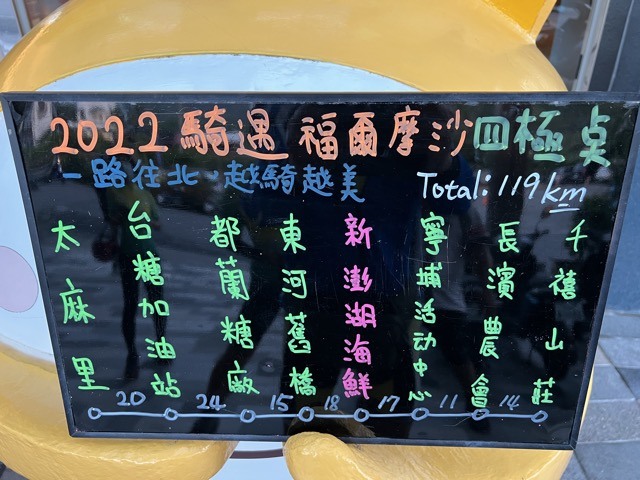 2022 騎遇 福爾摩沙四極点
一路往北、越騎越美
Total: 119 km
太麻里
台糖加油站
都蘭糖廠
東河舊橋
新澎湖海鮮
寧埔活动中心
長濱農會
千禧山莊
20 24 15 18 17 11 14